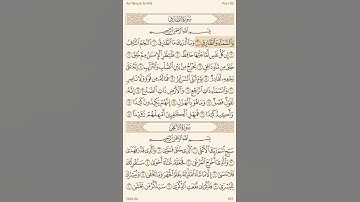 At-Tariq & Al-A'la
Part 30
سُورَةُ الطَّارِقِ
بِسْمِ اللَّهِ الرَّحْمَٰنِ الرَّحِيمِ
وَالسَّمَاءِ وَالطَّارِقِ ١ وَمَا أَدْرَاكَ مَا الطَّارِقُ ٢ النَّجْمُ الثَّاقِبُ
٣ إِن كُلُّ نَفْسٍ لَّمَّا عَلَيْهَا حَافِظٌ ٤ فَلْيَنظُرِ الْإِنسَانُ مِمَّ خُلِقَ ٥ خُلِقَ
مِن مَّاءٍ دَافِقٍ ٦ يَخْرُجُ مِن بَيْنِ الصُّلْبِ وَالتَّرَائِبِ ٧ إِنَّهُ عَلَىٰ رَجْعِهِ
لَقَادِرٌ ٨ يَوْمَ تُبْلَى السَّرَائِرُ ٩ فَمَا لَهُ مِن قُوَّةٍ وَلَا نَاصِرٍ ١٠
وَالسَّمَاءِ ذَاتِ الرَّجْعِ ١١ وَالْأَرْضِ ذَاتِ الصَّدْعِ ١٢ إِنَّهُ
لَقَوْلٌ فَصْلٌ ١٣ وَمَا هُوَ بِالْهَزْلِ ١٤ إِنَّهُمْ يَكِيدُونَ كَيْدًا ١٥
وَأَكِيدُ كَيْدًا ١٦ فَمَهِّلِ الْكَافِرِينَ أَمْهِلْهُمْ رُوَيْدًا ١٧
سُورَةُ الْأَعْلَىٰ
بِسْمِ اللَّهِ الرَّحْمَٰنِ الرَّحِيمِ
سَبِّحِ اسْمَ رَبِّكَ الْأَعْلَى ١ الَّذِي خَلَقَ فَسَوَّىٰ ٢ وَالَّذِي قَدَّرَ فَهَدَىٰ
٣ وَالَّذِي أَخْرَجَ الْمَرْعَىٰ ٤ فَجَعَلَهُ غُثَاءً أَحْوَىٰ ٥ سَنُقْرِئُكَ فَلَا تَنسَىٰ
٦ إِلَّا مَا شَاءَ اللَّهُ إِنَّهُ يَعْلَمُ الْجَهْرَ وَمَا يَخْفَىٰ ٧ وَنُيَسِّرُكَ لِلْيُسْرَىٰ
٨ فَذَكِّرْ إِن نَّفَعَتِ الذِّكْرَىٰ ٩ سَيَذَّكَّرُ مَن يَخْشَىٰ ١٠
Hizb 60
591